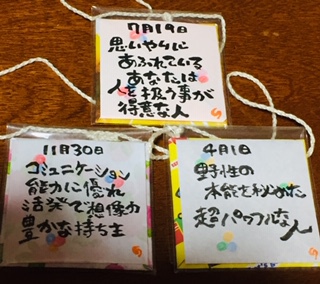 7月19日
思いやりに
あふれている
あなたは
人を扱う事が
得意な人
11月30日
コミュニケーション
能力に優れ
活発で想像力
豊かな持ち主
4月1日
野性の
本能を秘めた
超パワフルな人